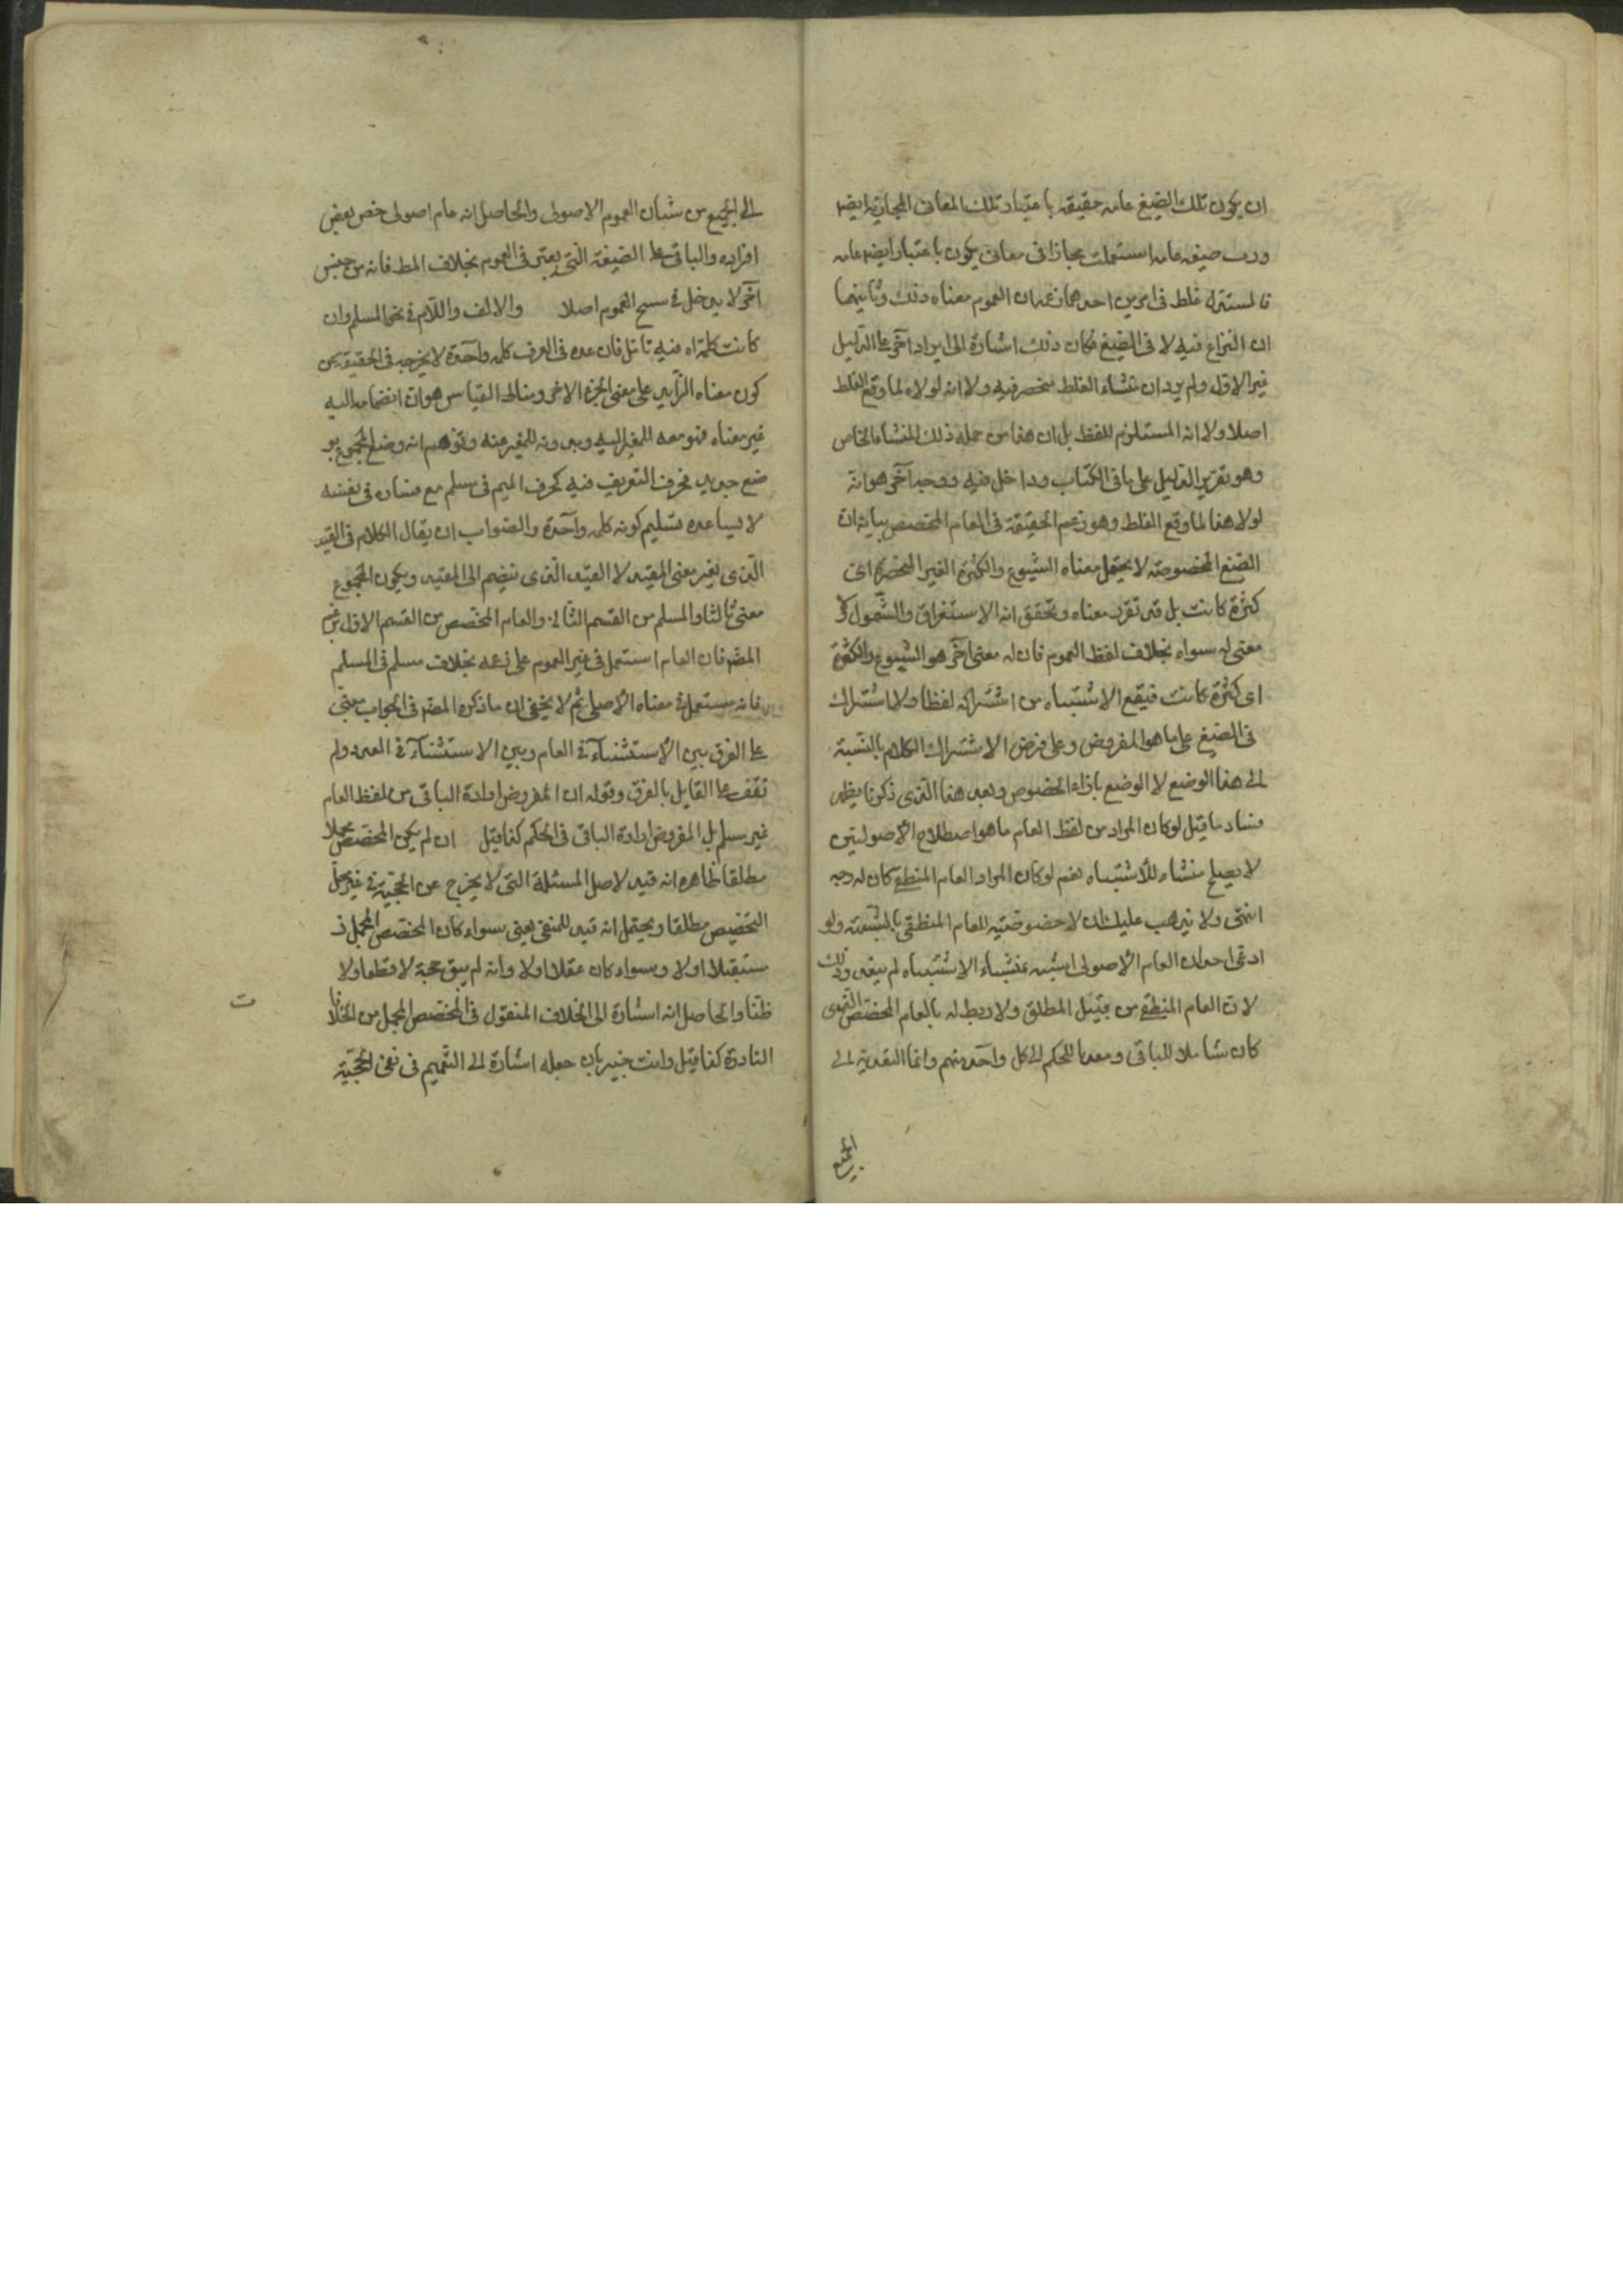 ان يكون تلك الصيغ عامه حقيقه باعتبار تلك المعانى المجازية ايضا
ورب صيغه عامه استعملت مجازا فى معانى يكون باعتبارها ايضا عامه
فالمستدل غلط فى امرين احدهما زعم ان العموم معناه ذلك وثانيهما
ان النزاع فيه لا فى الصيغ فكان ذلك اشارة الى ايراد آخر على الدليل
غير الاول ولم يرد ان منشاء الغلط منحصر فيه ولا انه لولاه لما وقع الغلط
اصلا ولا انه المستلزم للغلط بل ان هذا من جملة ذلك المنشاء الخاص
وهو تقرير الدليل على ما فى الكتاب وداخل فيه ووجه آخر هو انه
لولا هذا لما وقع الغلط وهو زعم الحقيقة فى العام المخصص بيانه ان
الصيغ المخصوصة لا يحتمل معناه الشيوع والكثرة الغير المنحصرة اى
كثرة كانت بل قد تقرر معناه وتحقق انه الاستغراق والشمول ولا
معنى له سواه بخلاف لفظ العموم فان له معنى آخر هو الشيوع والكثرة
اى كثرة كانت فيقع الاشتباه من اشتراكه لفظا ولا اشتراك
فى الصيغ على ما هو المفروض وعلى فرض الاشتراك الكلام بالنسبة
الى هذا الوضع لا الوضع بازاء الخصوص وبعد هذا الذى ذكرنا يظهر
فساد ما قيل لو كان المراد من لفظ العام ما هو اصطلاح الاصوليين
لا يصلح منشاء للاشتباه نعم لو كان المراد العام المنطقى كان له وجه
انتهى ولا يذهب عليك ان لا خصوصية للعام المنطقى بالشبهة ولو
ادعى احد ان العام الاصولى اشبه بمنشاء الاشتباه لم يبعد وذلك
لان العام المنطقى من قبيل المطلق ولا ربط له بالعام المخصص الذى
كان شاملا للباقى ومعديا للحكم الى كل واحد منهم وانما التعدية الى
الجميع
الى الجميع من شان العموم الاصولى والحاصل انه عام اصولى خص بعض
افراده والباقى على الصيغة التى يعتبر فى العموم بخلاف المط فانه من جنس
آخر لا يدخل فى سنح العموم اصلا والالف واللام فى نحو المسلم وان
كانت كلمة اه فيه تامل فان عده فى العرف كلمه واحدة لا يخرجه فى الحقيقة عن
كون معناه الزايد على معنى الجزء الاخر ومناط القياس هو ان انضمامه اليه
غير معناه فهو معه للمغير اليه وبدونه للمغير عنه وتوهم انه وضع المجموع بو
ضع جديد فحرف التعريف فيه كحرف الميم فى مسلم مع فساده فى نفسه
لا يساعده تسليم كونه كلمه واحدة والصواب ان يقال الكلام فى القيد
الذى يغير معنى المقيد لا القيد الذى ينضم الى المقيد ويكون المجموع
معنى ثالثا والمسلم من القسم الثانى والعام المخصص من القسم الاول
المضر فان العام استعمل فى غير العموم على زعمه بخلاف مسلم فى المسلم
فانه مستعمل فى معناه الاصلى ثم لا يخفى ان ما ذكره المض فى الجواب مبنى
على الفرق بين الاستثناء فى العام وبين الاستثناء فى العدد ولم
نقف على القايل بالفرق وقوله ان المفروض ارادة الباقى من لفظ العام
غير مسلم بل المفروض ارادة الباقى فى الحكم كذا قيل ان لم يكن المخصص مجملا
مطلقا ظاهره انه قيد لاصل المسئلة التى لا يخرج عن الحجية فى غير محل
التخصيص مطلقا ويحتمل انه قيد للمنفى يعنى سواء كان المخصص المجمل
مستقلا اولا وسواء كان عقلا اولا وانه لم يبق حجة لا قطعا ولا
ظنا والحاصل انه اشارة الى الخلاف المنقول فى المخصص المجمل من الخلافا
ت
النادرة كذا قيل وانت خبير بان جعله اشارة الى التعميم فى نفى الحجية